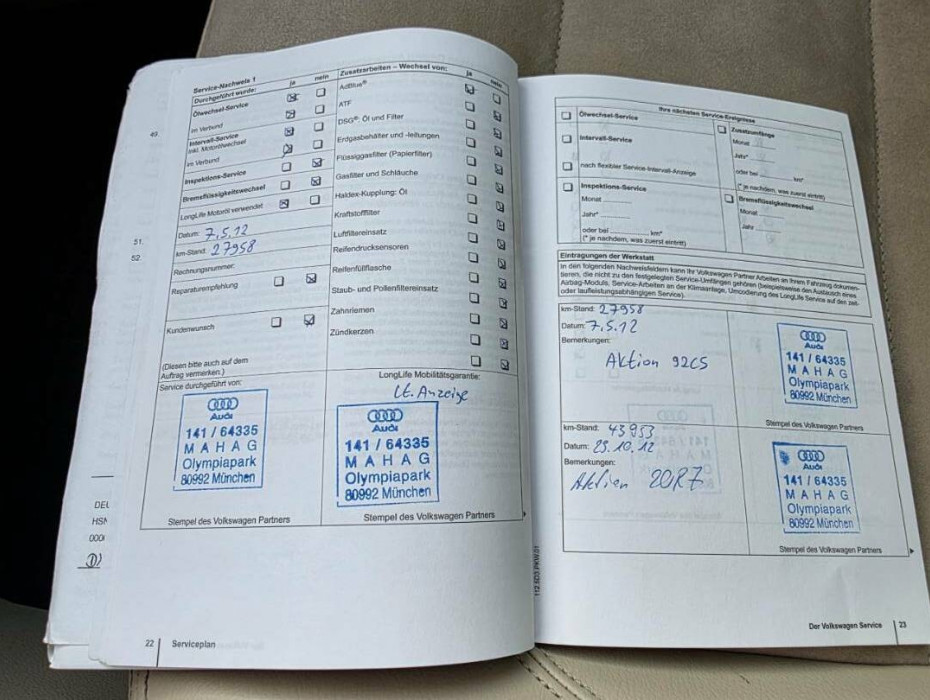 Service-Nachweis 1
Durchgeführt wurde: ja nein
Ölwechsel-Service
im Verbund
Intervall-Service
inkl. Motorölwechsel
im Verbund
Inspektions-Service
Bremsflüssigkeitswechsel
LongLife Motoröl verwendet
Datum: 7.5.12
km-Stand: 27958
Rechnungsnummer:
Reparaturempfehlung
Kundenwunsch
(Diesen bitte auch auf dem
Auftrag vermerken.)
Zusatzarbeiten – Wechsel von: ja nein
AdBlue®
ATF
DSG®: Öl und Filter
Erdgasbehälter und -leitungen
Flüssiggasfilter (Papierfilter)
Gasfilter und Schläuche
Haldex-Kupplung: Öl
Kraftstofffilter
Luftfiltereinsatz
Reifendrucksensoren
Reifenfüllflasche
Staub- und Pollenfiltereinsatz
Zahnriemen
Zündkerzen
Service durchgeführt von:
Audi
141 / 64335
MAHAG
Olympiapark
80992 München
Stempel des Volkswagen Partners
LongLife Mobilitätsgarantie:
Lt. Anzeige
Audi
141 / 64335
MAHAG
Olympiapark
80992 München
Stempel des Volkswagen Partners
49.
51.
52.
22 Serviceplan
Ihre nächsten Service-Ereignisse
Ölwechsel-Service
Intervall-Service
nach flexibler Service-Intervall-Anzeige
Inspektions-Service
Monat
Jahr*
oder bei km*
(* je nachdem, was zuerst eintritt)
Zusatzumfänge
Monat
Jahr*
oder bei km*
(* je nachdem, was zuerst eintritt)
Bremsflüssigkeitswechsel
Monat
Jahr
Eintragungen der Werkstatt
In den folgenden Nachweisfeldern kann Ihr Volkswagen Partner Arbeiten an Ihrem Fahrzeug dokumen-
tieren, die nicht zu den festgelegten Service-Umfängen gehören (beispielsweise den Austausch eines
Airbag-Moduls, Service-Arbeiten an der Klimaanlage, Umcodierung des LongLife Service auf den zeit-
oder laufleistungsabhängigen Service).
km-Stand: 27958
Datum: 7.5.12
Bemerkungen:
Aktion 92C5
Audi
141 / 64335
MAHAG
Olympiapark
80992 München
Stempel des Volkswagen Partners
km-Stand: 43953
Datum: 23.10.12
Bemerkungen:
Aktion 20R7
Audi
141 / 64335
MAHAG
Olympiapark
80992 München
Stempel des Volkswagen Partners
Der Volkswagen Service 23